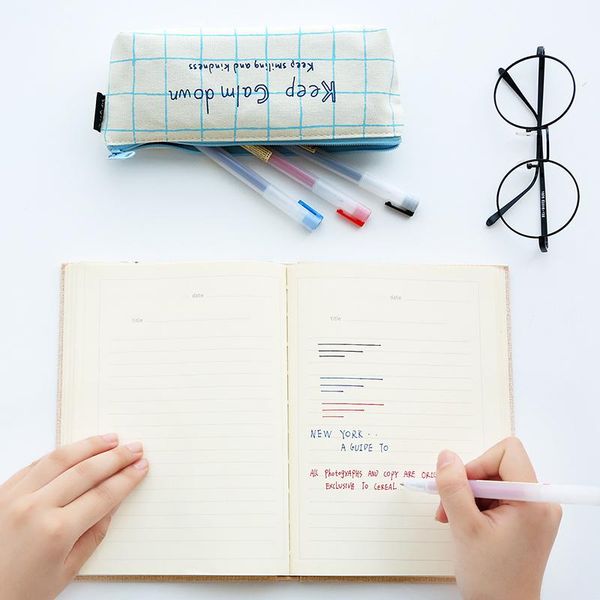 Keep Calm down
Keep smiling and kindness
date
title
date
title
NEW YORK..
A GUIDE TO
All PHOTOGRAPHS AND COPY ARE ORIG
EXCLUSIVE TO CEREAL.